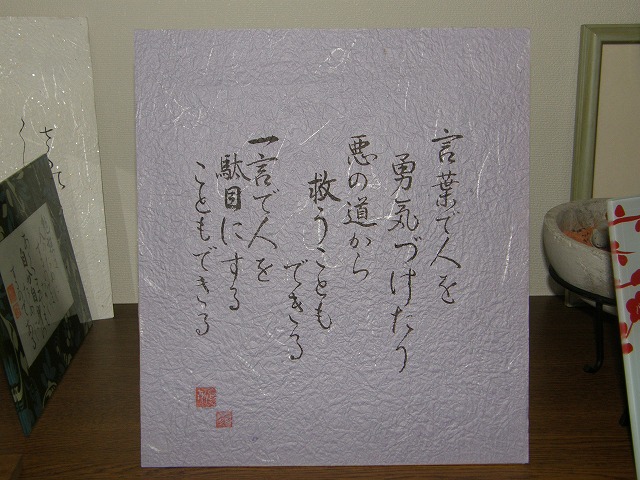 言葉で人を
勇気づけたり
悪の道から
救うことも
できる
一言で人を
駄目にする
こともできる